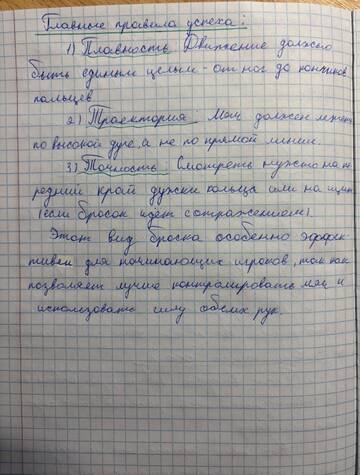 Главные правила успеха:
1) Плавность. Движение должно
быть единым целым - от ног до кончиков
пальцев.
2) Траектория. Мяч должен лететь
по высокой дуге, а не по прямой линии.
3) Точность. Смотреть нужно на пе
редний край дужки кольца или на щит
(если бросок идёт с отражением).
Этот вид броска особенно эффек
тивен для начинающих игроков, так как
позволяет лучше контролировать мяч и
использовать силу обеих рук.